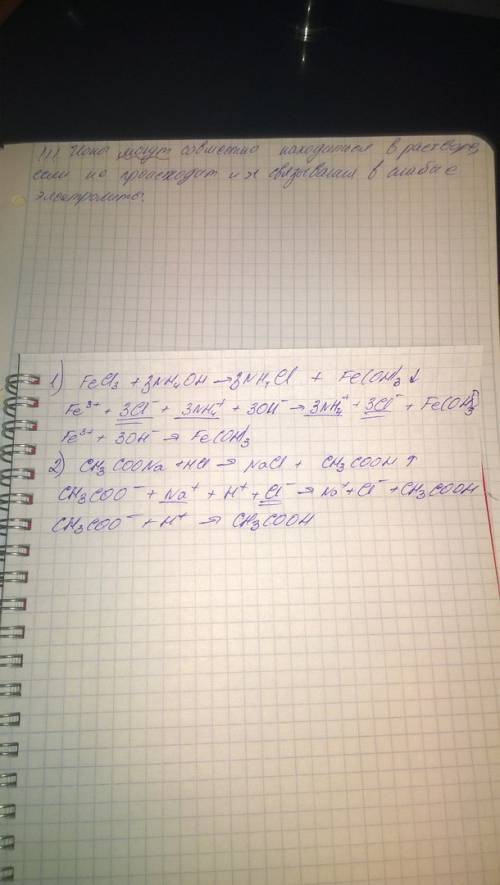 !!! Ионы могут совместно находиться в растворе,
если не происходит их связывания в слабые
электролиты.
1) FeCl3 + 3NH4OH → 3NH4Cl + Fe(OH)3 ↓
Fe3+ + 3Cl- + 3NH4+ + 3OH- → 3NH4+ + 3Cl- + Fe(OH)3
Fe3+ + 3OH- → Fe(OH)3
2) CH3COONa + HCl → NaCl + CH3COOH ↑
CH3COO- + Na+ + H+ + Cl- → Na+ + Cl- + CH3COOH
CH3COO- + H+ → CH3COOH